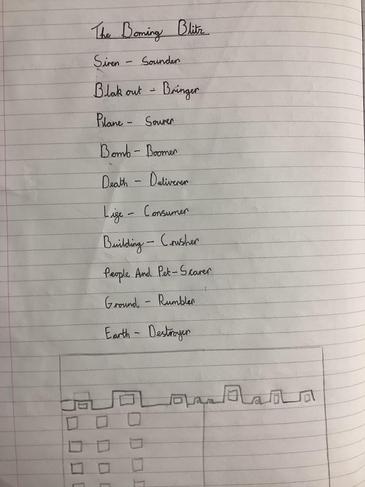 The Boming Blitz
Siren - Sounder
Blakout - Bringer
Plane - Sourer
Bomb - Boomer
Death - Deliverer
Lige - Consumer
Building - Crusher
People And Pet-Scarer
Ground - Rumbler
Earth - Destroyer